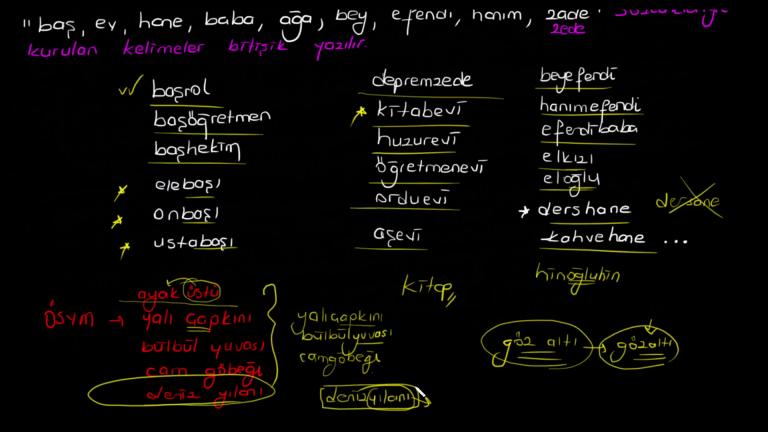 "baş, ev, hane, baba, ağa, bey, efendi, hanım, zade"
zede
kurulan kelimeler bitişik yazılır.
başrol
başöğretmen
başhekim
elebaşı
onbaşı
ustabaşı
depremzede
kitabevi
huzurevi
öğretmenevi
orduevi
aşevi
beyefendi
hanımefendi
efendibaba
elkızı
eloğlu
dershane
dersane
kahvehane ...
hinoğluhin
kitap
ÖSYM →
ayak üstü
yalı çapkını
bülbül yuvası
cam göbeği
deniz yılanı
yalıçapkını
bülbülyuvası
camgöbeği
denizyılanı
göz altı → gözaltı